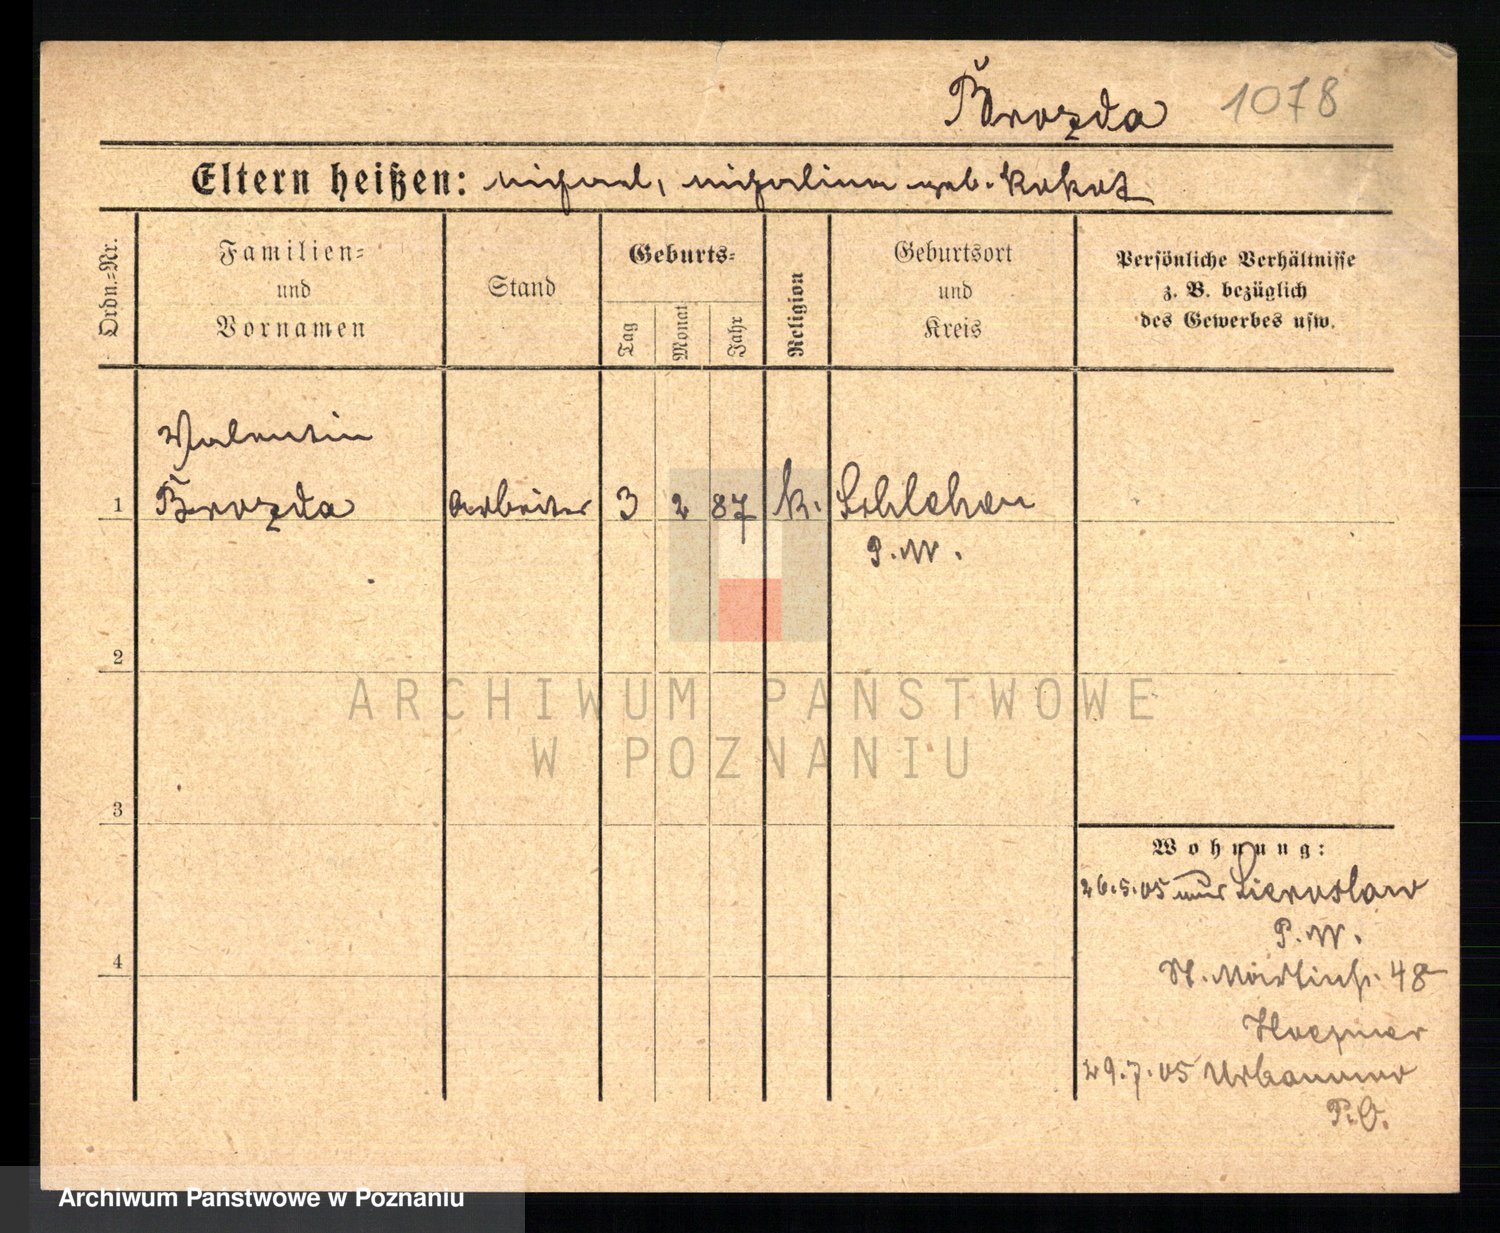 Brozda 1078
Eltern heißen: Michael, Michalina geb. Kokot
Ordn.=Nr.
Familien=
und
Vornamen
Stand
Geburts=
Tag
Monat
Jahr
Religion
Geburtsort
und
Kreis
Persönliche Verhältnisse
z. B. bezüglich
des Gewerbes usw.
Valentin
1 Brozda Arbeiter 3 2 87 k.
P. W.
2
ARCHIWUM PAŃSTWOWE
W POZNANIU
3
Wohnung:
26.5.05 aus Sieroslaw
P. W.
St. Martinstr. 48
29.7.05 Urbanowo
P. O.
4
Archiwum Państwowe w Poznaniu